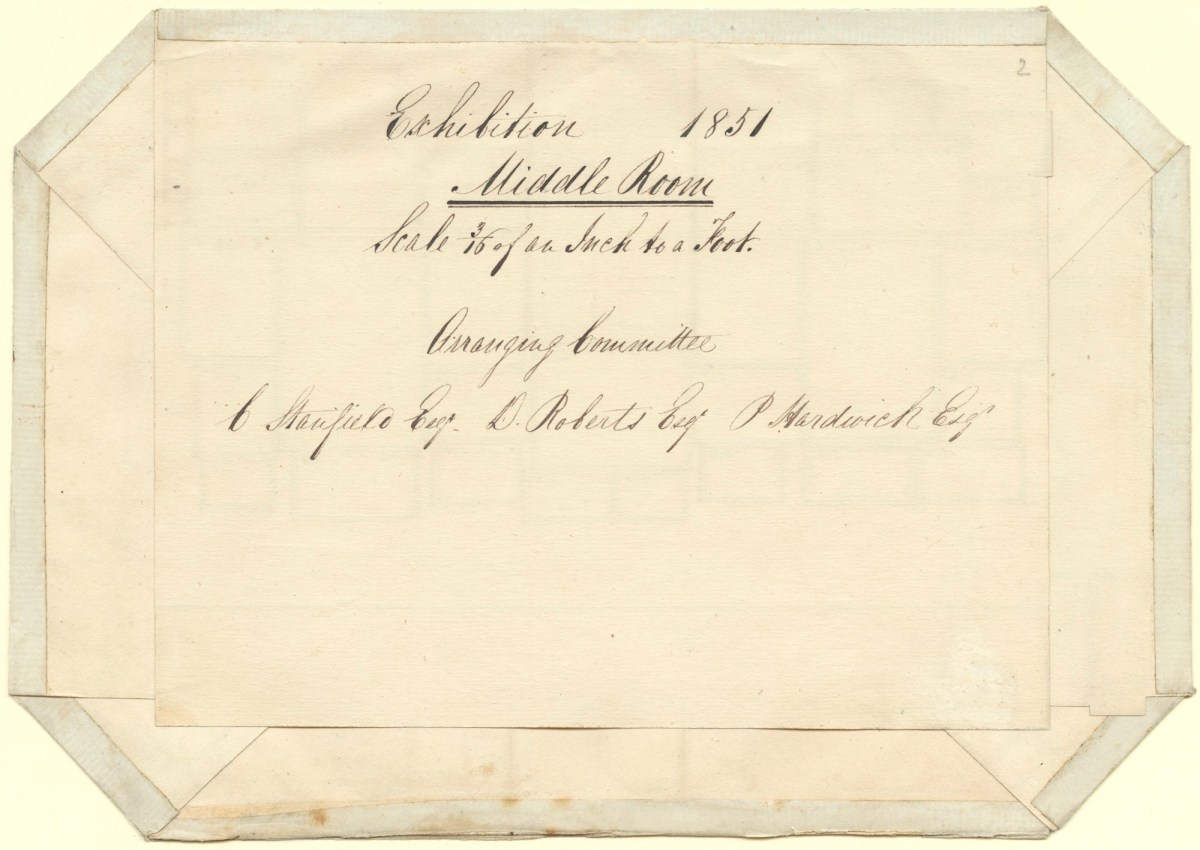 2
Exhibition 1851
Middle Room
Scale 3/16 of an Inch to a Foot.
Arranging Committee
C Stanfield Esqr. D. Roberts Esqr P Hardwick Esqr